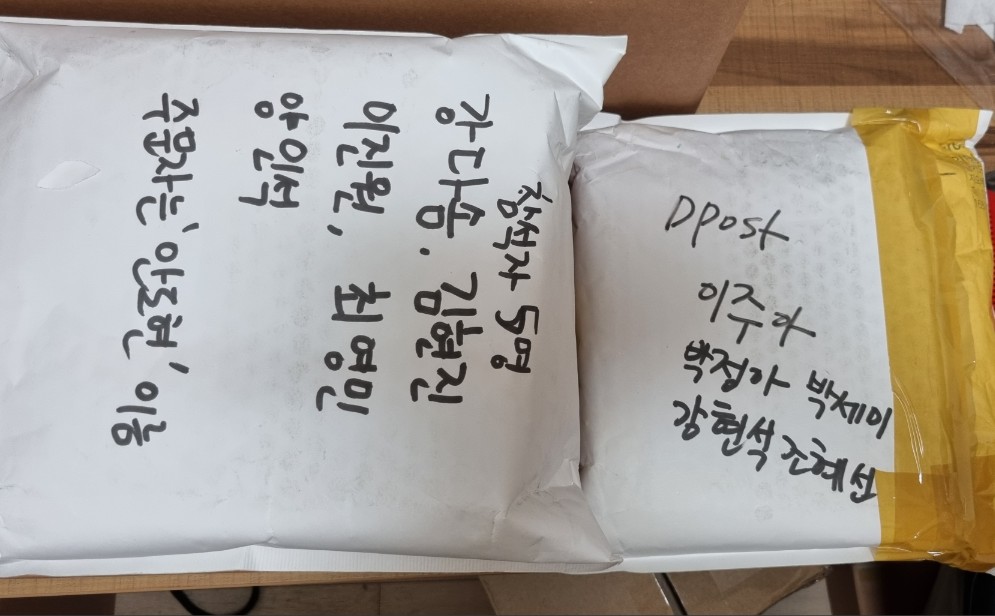 참석자 5명
강다솜. 김현진
이진원, 최영민
양인석
주문자는 '안도현' 이름
Dpost
이주아
박정아 박세미
강현석 조혜선